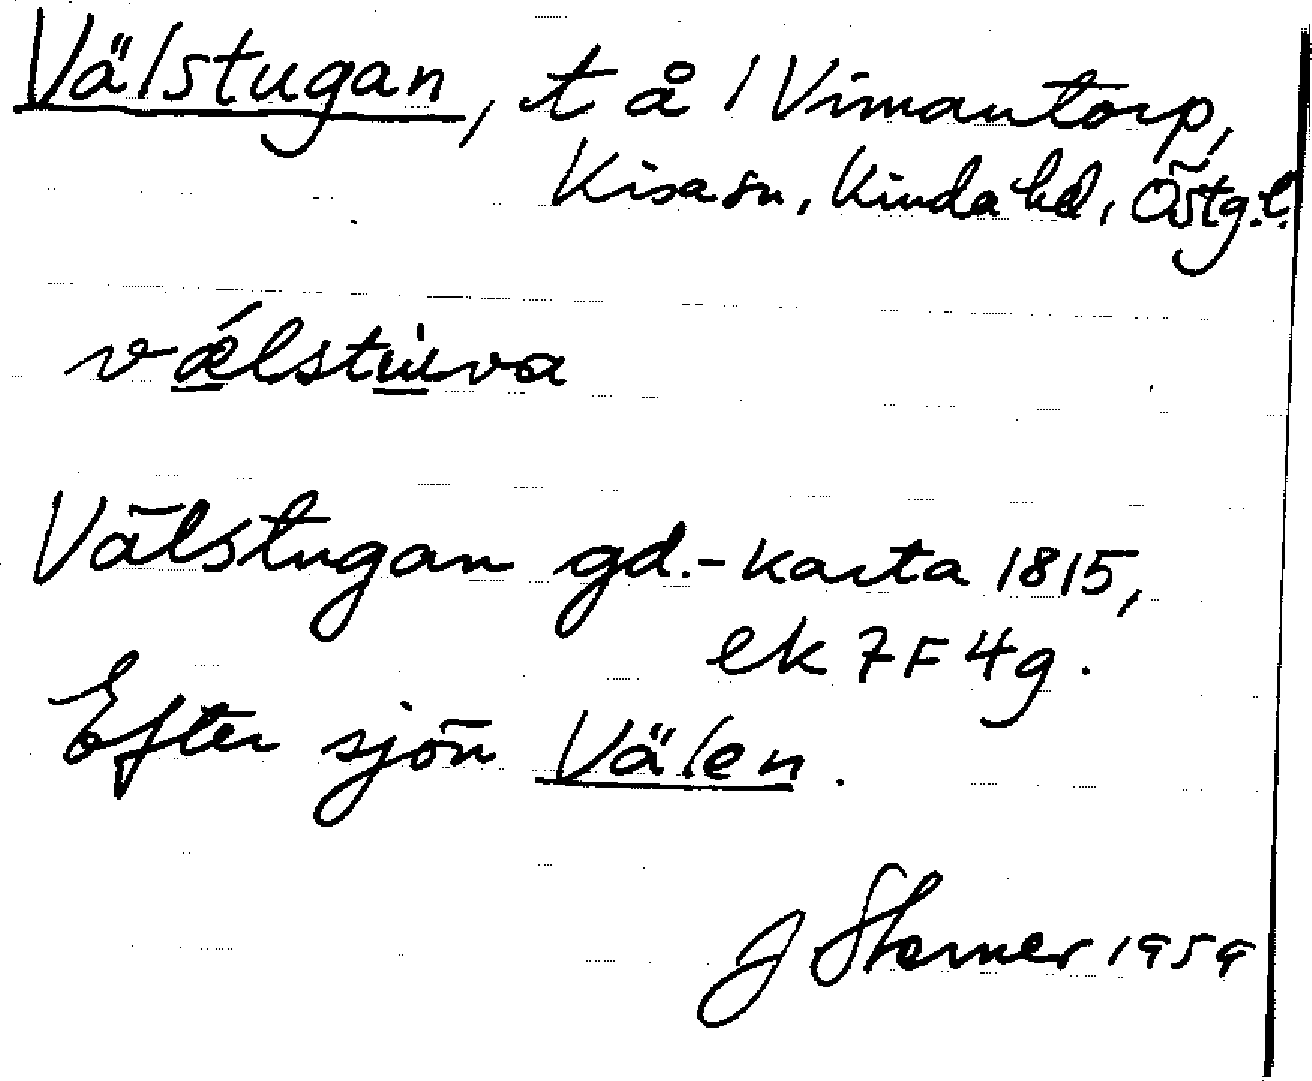 Välstugan, t å 1 Vimantorp,
Kisa sn, Kinda hd, Östg.l.
vǽlstu̇va
Välstugan gd.-karta 1815,
ek 7F4g.
Efter sjön Välen.
J Sterner 1959